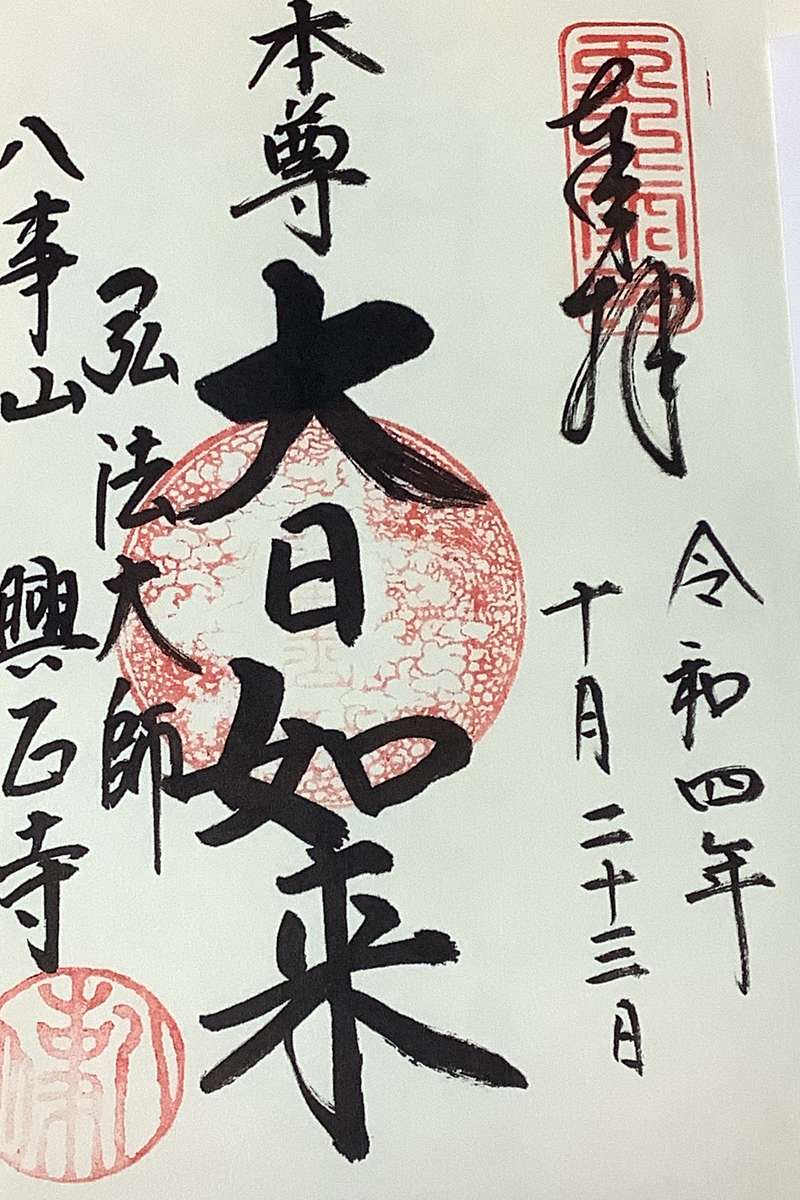 奉拝
令和四年
十月二十三日
本尊 大日如来
弘法大師
八事山 興正寺